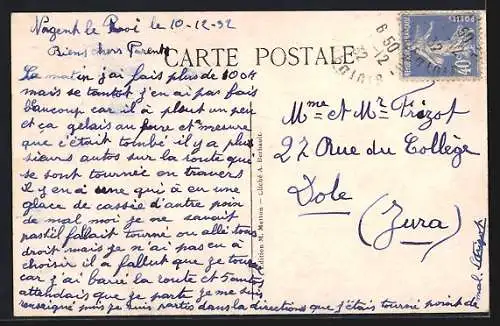 Nogent le Roi le 10-12-32
Biens chers Parents
CARTE POSTALE
Ce matin j'ai fais plus de 100 k
mais se tantot j'en ai pas fais
beaucoup car il à plout un peu
et ça gelais au fure et mesure
que c'était tombé il y a plu
sieurs autos sur la route qui
se sont tournée en travers
il y en à une qui à eu une
glace de cassée d'autre poin
de mal moi je ne savait
pas s'il fallait tourné ou allé tous
droit mais je n'ai pas eu à
choisir il a fallut que je tourne
car j'ai barré la route et
attendais que je parte je me suis
renseigné puis je suis partis dans la directions que j'étais tourné point de
mal.
Édition M. Matton — Cliché A.
Mme et Mr Frizot
27 Rue du Collège
Dole
(Jura)
POSTES
40c